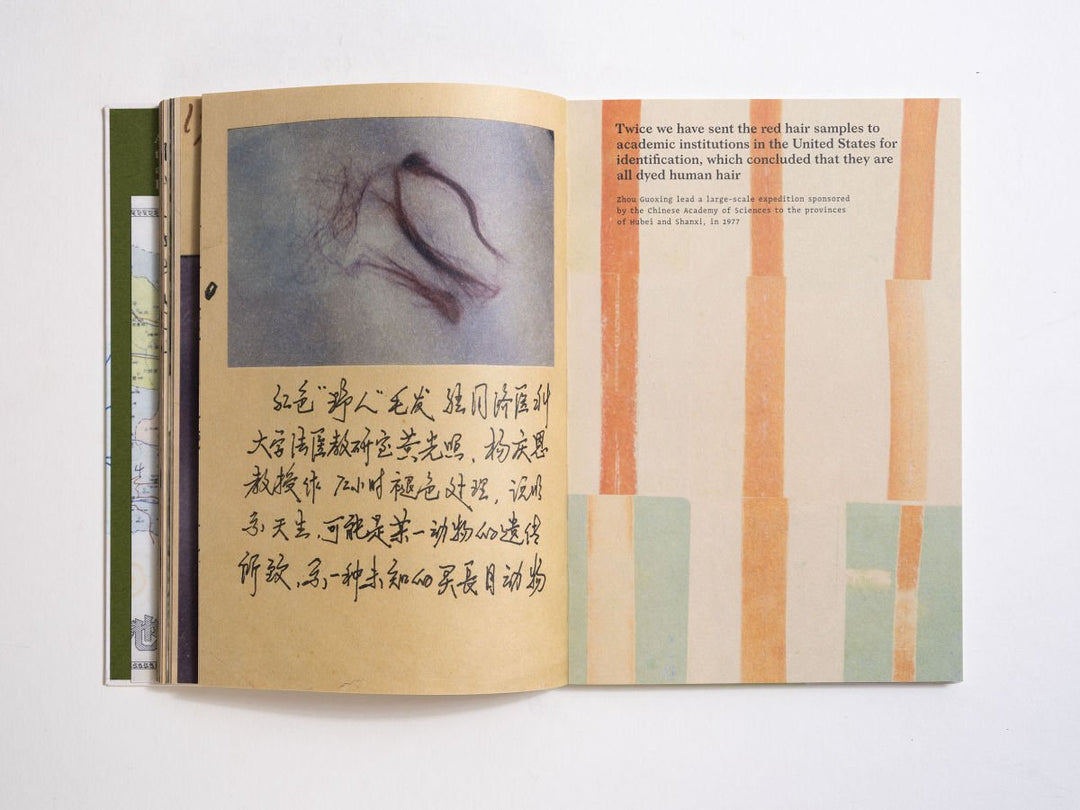 红色"野人"毛发 经同济医科
大学法医教研室黄光照、杨庆恩
教授作 72小时褪色处理，说明
系天生，可能是某一动物的遗传
所致，系一种未知的灵长目动物
Twice we have sent the red hair samples to
academic institutions in the United States for
identification, which concluded that they are
all dyed human hair
Zhou Guoxing lead a large-scale expedition sponsored
by the Chinese Academy of Sciences to the provinces
of Hubei and Shanxi, in 1977